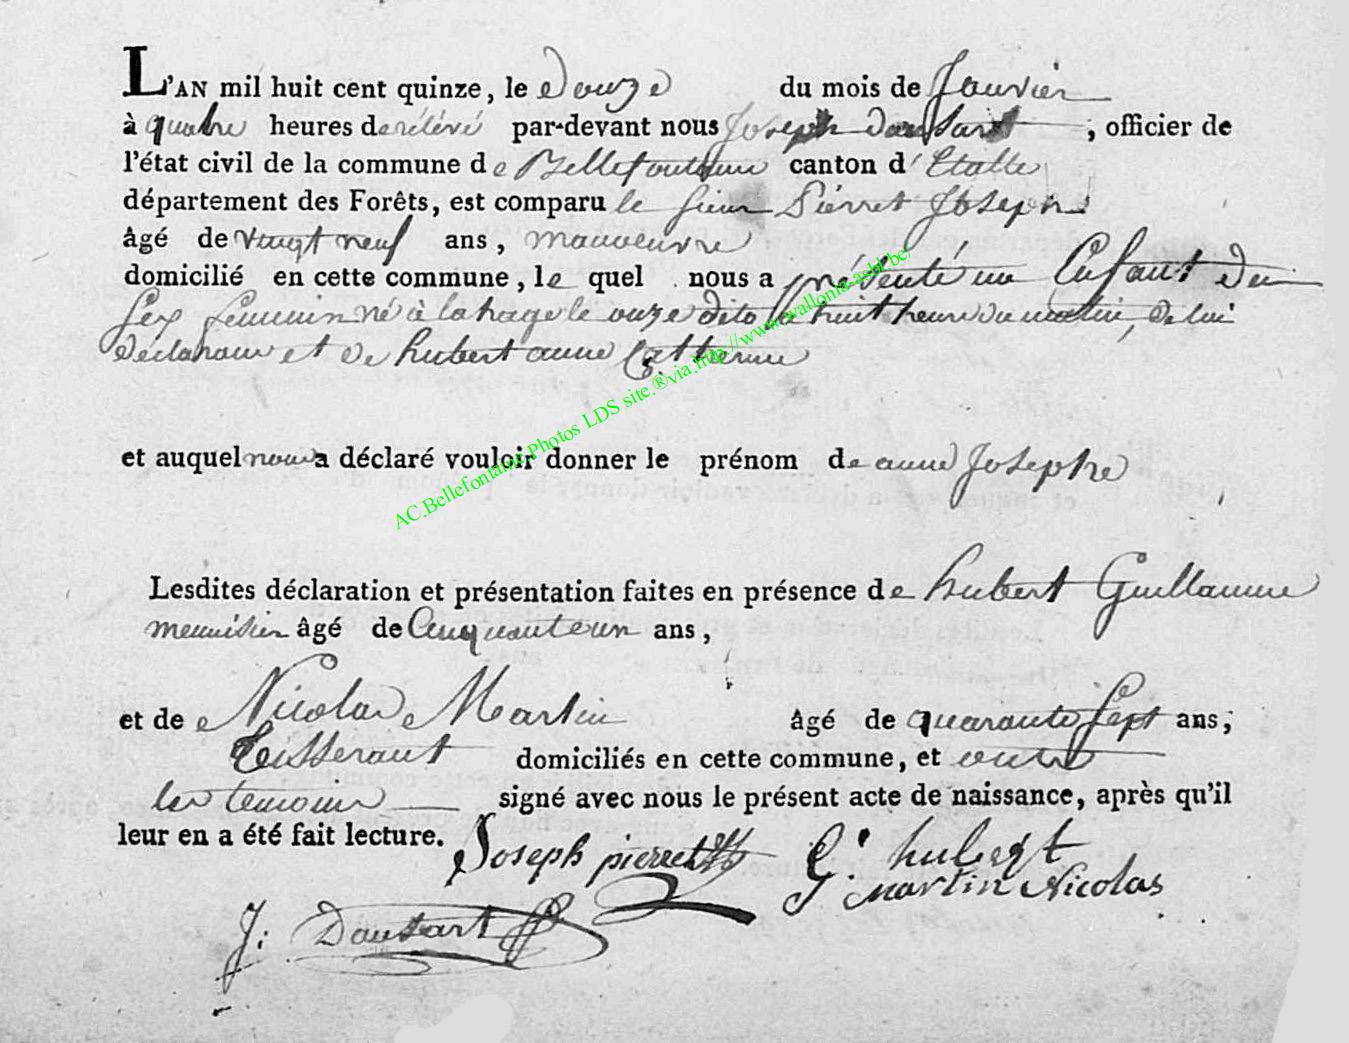 L'AN mil huit cent quinze, le Douze du mois de Janvier
à quatre heures de rélévé par-devant nous Joseph Dausart, officier de
l'état civil de la commune de Bellefontaine canton d'Etalle
département des Forêts, est comparu le sieur Pierret Joseph
âgé de vingt neuf ans, manoeuvre
domicilié en cette commune, le quel nous a présenté un Enfant du
sex féminin né à lahage le onze dito à huit heure du matin, de lui
déclarant et de hubert anne Catherine
et auquel nous a déclaré vouloir donner le prénom de anne Josephe
Lesdites déclaration et présentation faites en présence de hubert Guillaume
menuisier âgé de Cinquante un ans,
et de Nicolas Martin âgé de quarante sept ans,
tisserant domiciliés en cette commune, et ont
les temoins signé avec nous le présent acte de naissance, après qu'il
leur en a été fait lecture. Joseph pierret G. hubert
G. martin Nicolas
J. Dausart
AC.Bellefontaine.Photos LDS site.®via.http://www.wallonia-asbl.be/